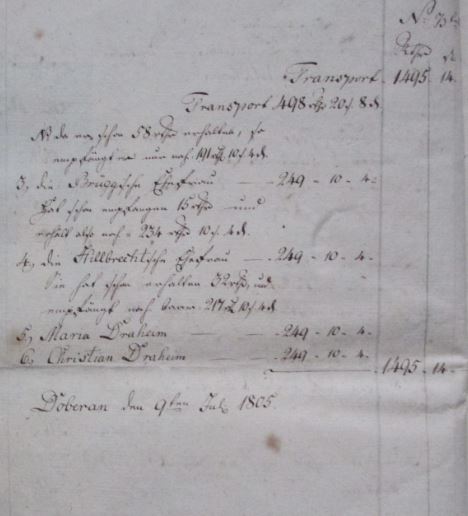 N⁰ 2/3
Rthlr ß
Transport - 1495. 14.
Transport 498 rthlr 20 ß. 8 d.
NB da er schon 58 rthlr erhalten, so
empfängt er nur noch 191 rthlr 10 ß 4 d.
3, die Brüeggsche Ehefrau — 249 - 10 - 4 -
Hat schon empfangen 15 rthlr und
erhält also noch = 234 rthlr 10 ß. 4 d.
4, die Hillbrechtsche Ehefrau — 249 - 10 - 4 -
Sie hat schon erhalten 32 rthlr, und
empfängt noch baar 217 rthlr 10 ß 4 d
5, Maria Draheim — 249 - 10 - 4 -
6, Christian Draheim — 249 - 10 - 4 -
1495 - 14 -
Doberan den 9ten July 1805.